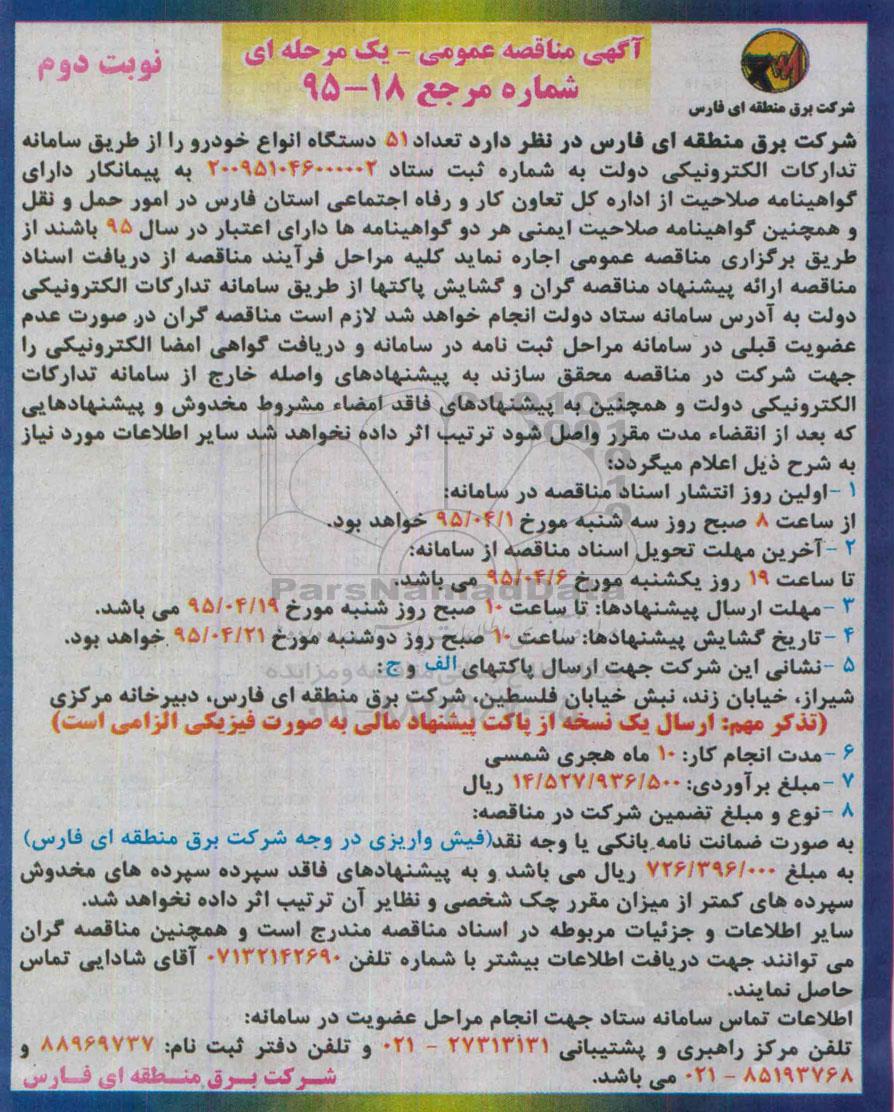 آگهی مناقصه عمومی - یک مرحله ای
شماره مرجع ۱۸-۹۵
نوبت دوم
شرکت برق منطقه ای فارس
شرکت برق منطقه ای فارس در نظر دارد تعداد ۵۱ دستگاه انواع خودرو را از طریق سامانه
تدارکات الکترونیکی دولت به شماره ثبت ستاد ۲۰۰۹۵۱۰۴۶۰۰۰۰۰۲ به پیمانکار دارای
گواهینامه صلاحیت از اداره کل تعاون کار و رفاه اجتماعی استان فارس در امور حمل و نقل
و همچنین گواهینامه صلاحیت ایمنی هر دو گواهینامه ها دارای اعتبار در سال ۹۵ باشند از
طریق برگزاری مناقصه عمومی اجاره نماید کلیه مراحل فرآیند مناقصه از دریافت اسناد
مناقصه ارائه پیشنهاد مناقصه گران و گشایش پاکتها از طریق سامانه تدارکات الکترونیکی
دولت به آدرس سامانه ستاد دولت انجام خواهد شد لازم است مناقصه گران در صورت عدم
عضویت قبلی در سامانه مراحل ثبت نامه در سامانه و دریافت گواهی امضا الکترونیکی را
جهت شرکت در مناقصه محقق سازند به پیشنهادهای واصله خارج از سامانه تدارکات
الکترونیکی دولت و همچنین به پیشنهادهای فاقد امضاء مشروط مخدوش و پیشنهادهایی
که بعد از انقضاء مدت مقرر واصل شود ترتیب اثر داده نخواهد شد سایر اطلاعات مورد نیاز
به شرح ذیل اعلام میگردد:
۱ -اولین روز انتشار اسناد مناقصه در سامانه:
از ساعت ۸ صبح روز سه شنبه مورخ ۹۵/۰۴/۱ خواهد بود.
۲ -آخرین مهلت تحویل اسناد مناقصه از سامانه:
تا ساعت ۱۹ روز یکشنبه مورخ ۹۵/۰۴/۶ می باشد.
ParsNamadData
۳ -مهلت ارسال پیشنهادها: تا ساعت ۱۰ صبح روز شنبه مورخ ۹۵/۰۴/۱۹ می باشد.
۴ -تاریخ گشایش پیشنهادها: ساعت ۱۰ صبح روز دوشنبه مورخ ۹۵/۰۴/۲۱ خواهد بود.
۵ -نشانی این شرکت جهت ارسال پاکتهای الف و ج:
شیراز، خیابان زند، نبش خیابان فلسطین، شرکت برق منطقه ای فارس، دبیرخانه مرکزی
(تذکر مهم: ارسال یک نسخه از پاکت پیشنهاد مالی به صورت فیزیکی الزامی است)
۶ -مدت انجام کار: ۱۰ ماه هجری شمسی
۷ -مبلغ برآوردی: ۱۴/۵۲۷/۹۳۶/۵۰۰ ریال
۸ -نوع و مبلغ تضمین شرکت در مناقصه:
به صورت ضمانت نامه بانکی یا وجه نقد(فیش واریزی در وجه شرکت برق منطقه ای فارس)
به مبلغ ۷۲۶/۳۹۶/۰۰۰ ریال می باشد و به پیشنهادهای فاقد سپرده سپرده های مخدوش
سپرده های کمتر از میزان مقرر چک شخصی و نظایر آن ترتیب اثر داده نخواهد شد.
سایر اطلاعات و جزئیات مربوطه در اسناد مناقصه مندرج است و همچنین مناقصه گران
می توانند جهت دریافت اطلاعات بیشتر با شماره تلفن ۰۷۱۳۲۱۴۲۶۹۰ آقای شادایی تماس
حاصل نمایند.
اطلاعات تماس سامانه ستاد جهت انجام مراحل عضویت در سامانه:
تلفن مرکز راهبری و پشتیبانی ۲۷۳۱۳۱۳۱ - ۰۲۱ و تلفن دفتر ثبت نام: ۸۸۹۶۹۷۳۷ و
۸۵۱۹۳۷۶۸ - ۰۲۱ می باشد.
شرکت برق منطقه ای فارس